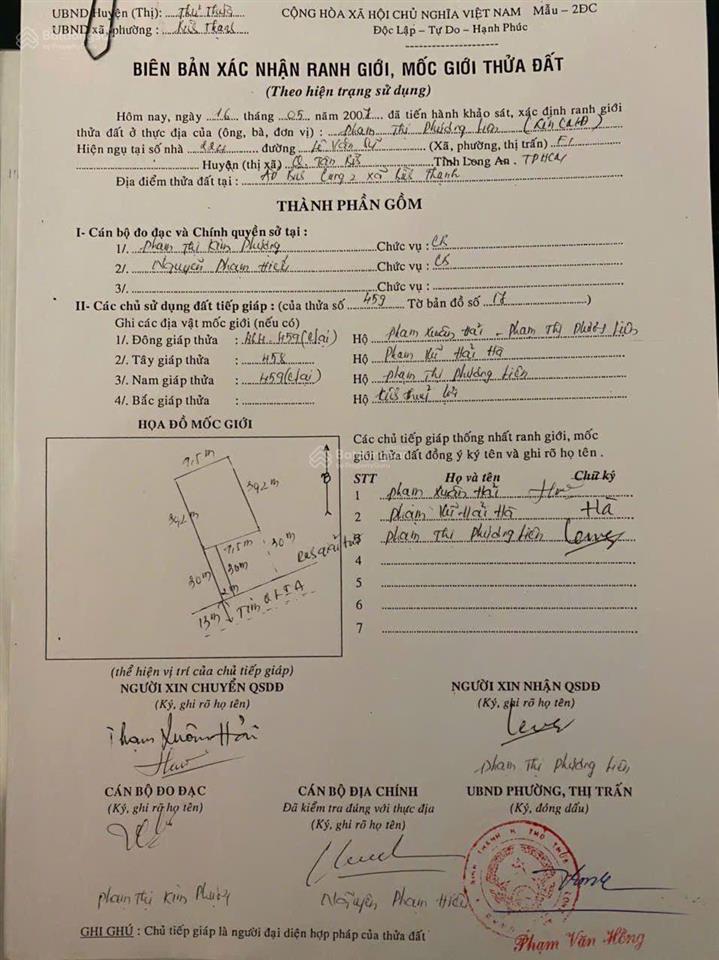 UBND Huyện (Thị): Thủ Thừa
UBND xã, phường : Thạnh
CỘNG HÒA XÃ HỘI CHỦ NGHĨA VIỆT NAM Mẫu – 2ĐC
Độc Lập – Tự Do – Hạnh Phúc
BIÊN BẢN XÁC NHẬN RANH GIỚI, MỐC GIỚI THỬA ĐẤT
(Theo hiện trạng sử dụng)
Hôm nay, ngày 16 tháng 05 năm 2007 đã tiến hành khảo sát, xác định ranh giới
thửa đất ở thực địa của (ông, bà, đơn vị) : Phạm Thị Phương Liên
Hiện ngụ tại số nhà đường Lê Văn Sỹ (Xã, phường, thị trấn) F1
Huyện (thị xã) Q. Tân Bình Tỉnh Long An . TPHCM
Địa điểm thửa đất tại : Thạnh
THÀNH PHẦN GỒM
I- Cán bộ đo đạc và Chính quyền sở tại :
1/. Phạm Thị Kim Phượng Chức vụ : CB
2/. Nguyễn Phạm Hiếu Chức vụ : CB
3/. Chức vụ :
II- Các chủ sử dụng đất tiếp giáp : (của thửa số 459 Tờ bản đồ số 17 )
Ghi các địa vật mốc giới (nếu có)
1/. Đông giáp thửa : 459 (C/lại) Hộ Phạm Xuân Hải - Phạm Thị Phương Liên
2/. Tây giáp thửa : 458 Hộ Phạm Vũ Hải Hà
3/. Nam giáp thửa : 459 (C/lại) Hộ Phạm Thị Phương Liên
4/. Bắc giáp thửa : Hộ
HỌA ĐỒ MỐC GIỚI
7,5m
39,2m
39,2m
B
7,5m
30m
30m
30m
2m
13m
Tim QL1A
Các chủ tiếp giáp thống nhất ranh giới, mốc
giới thửa đất đồng ý ký tên và ghi rõ họ tên .
STT Họ và tên Chữ ký
1 Phạm Xuân Hải
2 Phạm Vũ Hải Hà Hà
3 Phạm Thị Phương Liên
4
5
6
7
(thể hiện vị trí của chủ tiếp giáp)
NGƯỜI XIN CHUYỂN QSDĐ
(Ký, ghi rõ họ tên)
Phạm Xuân Hải
NGƯỜI XIN NHẬN QSDĐ
(Ký, ghi rõ họ tên)
Phạm Thị Phương Liên
CÁN BỘ ĐO ĐẠC
(Ký, ghi rõ họ tên)
Phạm Thị Kim Phượng
CÁN BỘ ĐỊA CHÍNH
Đã kiểm tra đúng với thực địa
(Ký, ghi rõ họ tên)
Nguyễn Phạm Hiếu
UBND PHƯỜNG, THỊ TRẤN
(Ký, đóng dấu)
Phạm Văn Hồng
GHI GHÚ : Chủ tiếp giáp là người đại diện hợp pháp của thửa đất